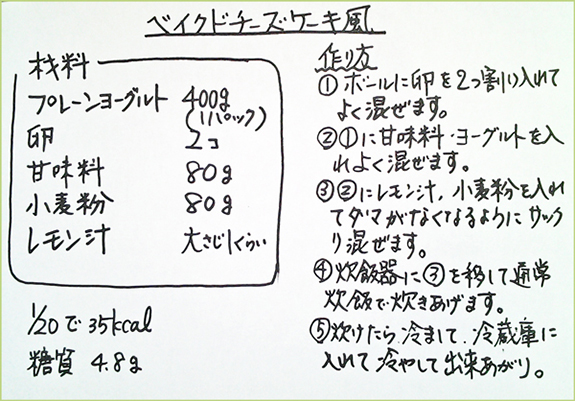 ベイクドチーズケーキ風
材料
プレーンヨーグルト 400g
(1パック)
卵 2コ
甘味料 80g
小麦粉 80g
レモン汁 大さじ1くらい
1/20で35kcal
糖質 4.8g
作り方
①ボールに卵を2つ割り入れて
よく混ぜます。
②①に甘味料・ヨーグルトを入
れよく混ぜます。
③②にレモン汁、小麦粉を入れ
てダマがなくなるようにサック
り混ぜます。
④炊飯器に③を移して通常
炊飯で炊きあげます。
⑤炊けたら冷まして、冷蔵庫に
入れて冷やして出来あがり。